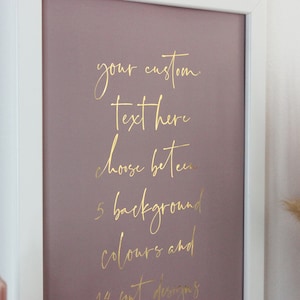 your custom
text here
choose beteen
5 background
colours and
designs